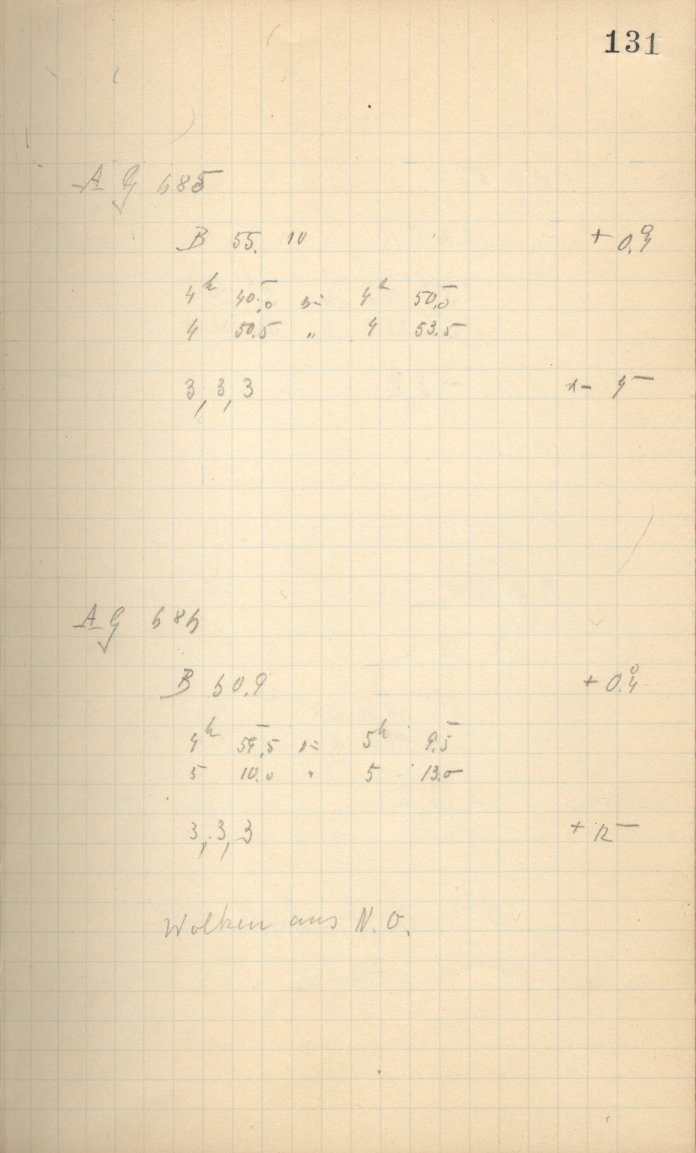 131
AG 685
B 55. 10 + 0.9
4h 40.0 bis 4h 50.0
4 50.5 " 4 53.5
3, 3, 3
AG 686
B 60.9
4h 59.5 bis 5h 9.5
5 10.0 " 5 13.0
3, 3, 3 + 12
Wolken aus N. O.